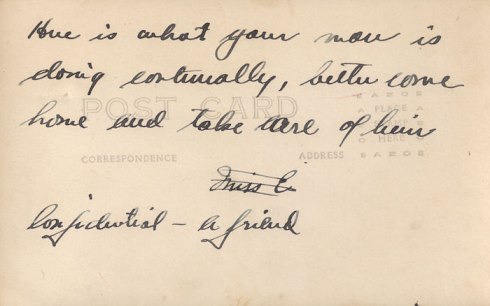 Here is what your man is
doing continually, better come
POST CARD
home and take care of him
CORRESPONDENCE
ADDRESS
PLACE
HERE
Miss C
Confidential – A friend